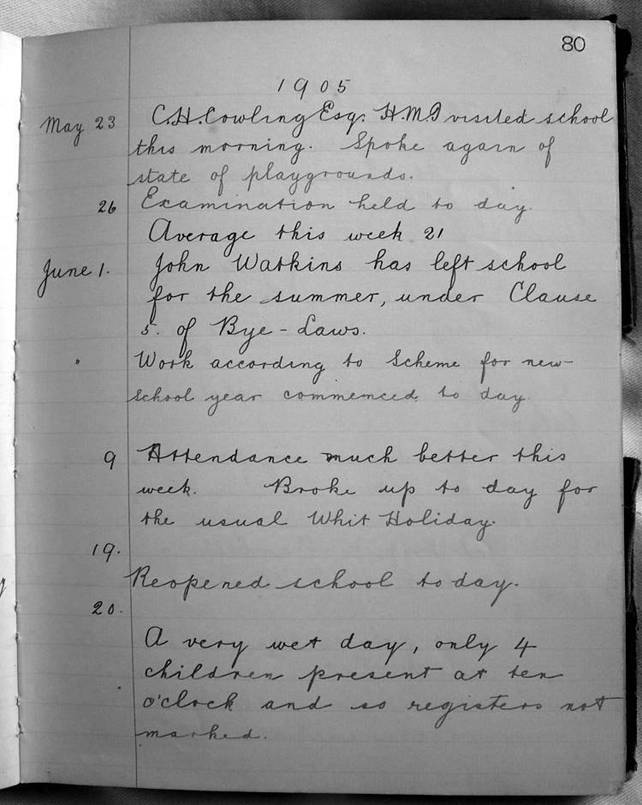 80
1905
May 23 C.H. Cowling Esq. H.M.I visited school
this morning. Spoke again of
state of playgrounds.
26 Examination held to day.
Average this week 21
June 1. John Watkins has left school
for the summer, under Clause
5. of Bye-Laws.
" Work according to Scheme for new
school year commenced to day
9 Attendance much better this
week. Broke up to day for
the usual Whit Holiday.
19.
Reopened school to day.
20.
A very wet day, only 4
children present at ten
o'clock and so registers not
marked.